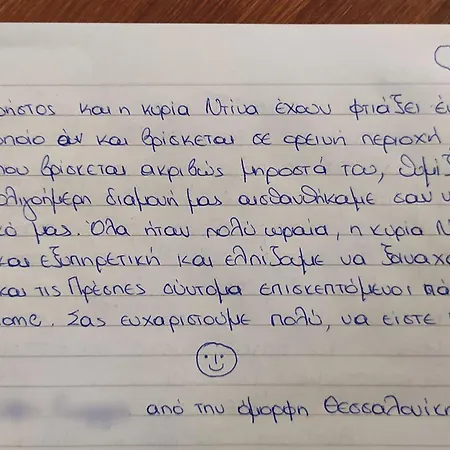 ρήστος και η κυρία Ντίνα έχουν φτιάξει έν
οποίο άν και βρίσκεται σε ορεινή περιοχή
που βρίσκεται ακριβώς μπροστά του, θυμίζ
ολιγοήμερη διαμονή μας αισθανθήκαμε σαν ν
κό μας. Όλα ήταν πολύ ωραία, η κυρία Ν
και εξυπηρετική και ελπίζαμε να ξαναχ
και τις Πρέσπες σύντομα επισκεπτόμενοι πά
ome. Σας ευχαριστούμε πολύ, να είστε
από την όμορφη Θεσσαλονίκη